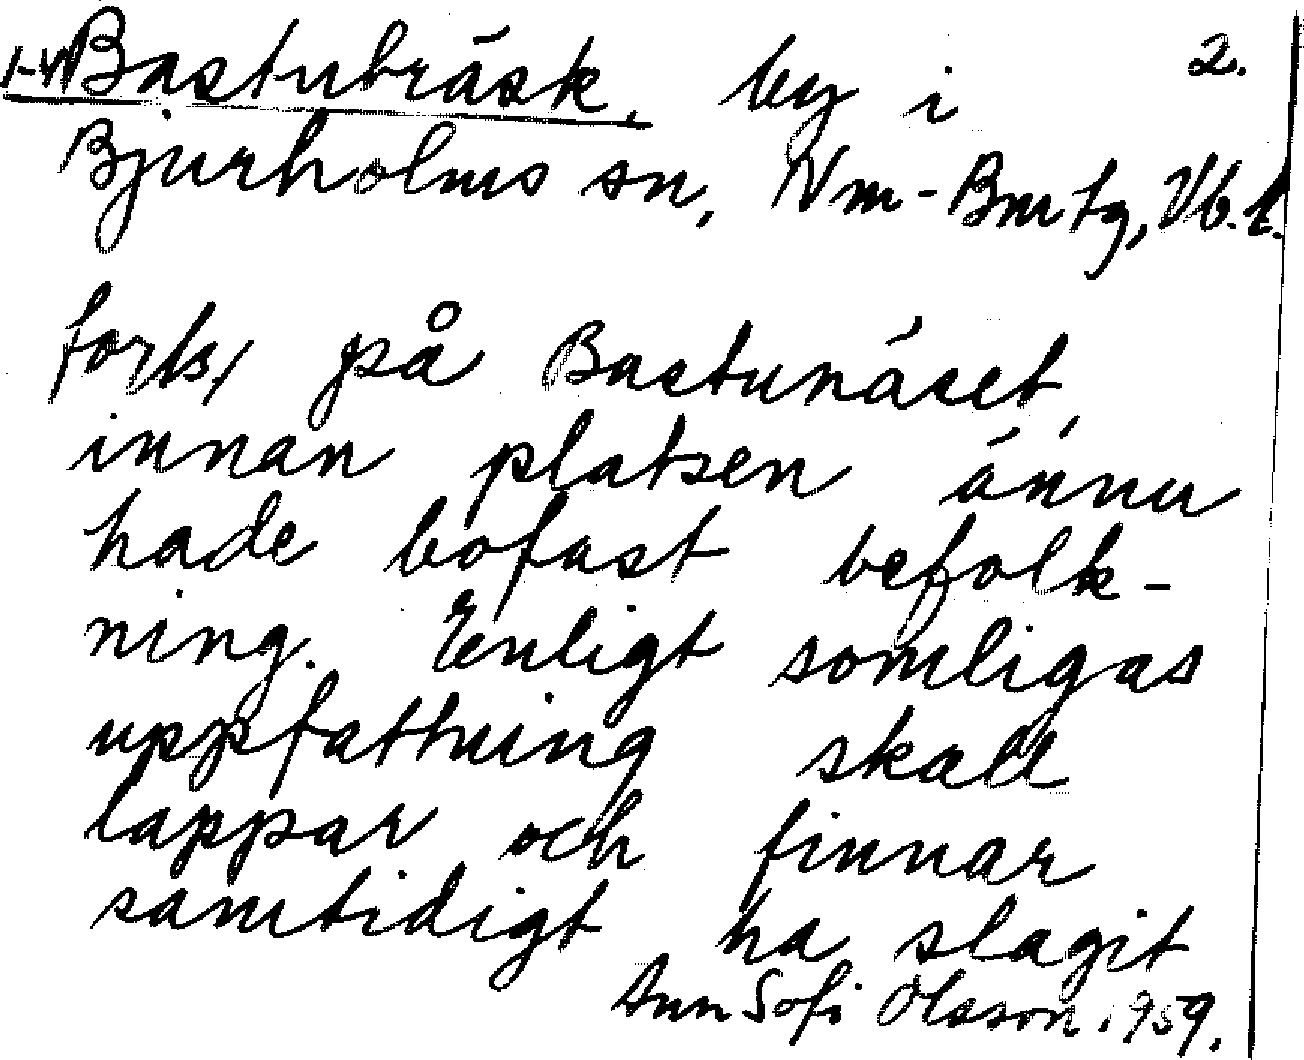 1-4 Bastuträsk, by i 2.
Bjurholms sn, Nm-Bmtg, Vb. l.
forts, på Bastunäset,
innan platsen ännu
hade bofast befolk-
ning. Enligt somligas
uppfattning skall
lappar och finnar
samtidigt ha slagit
Ann Sofi Olsson. 1959.